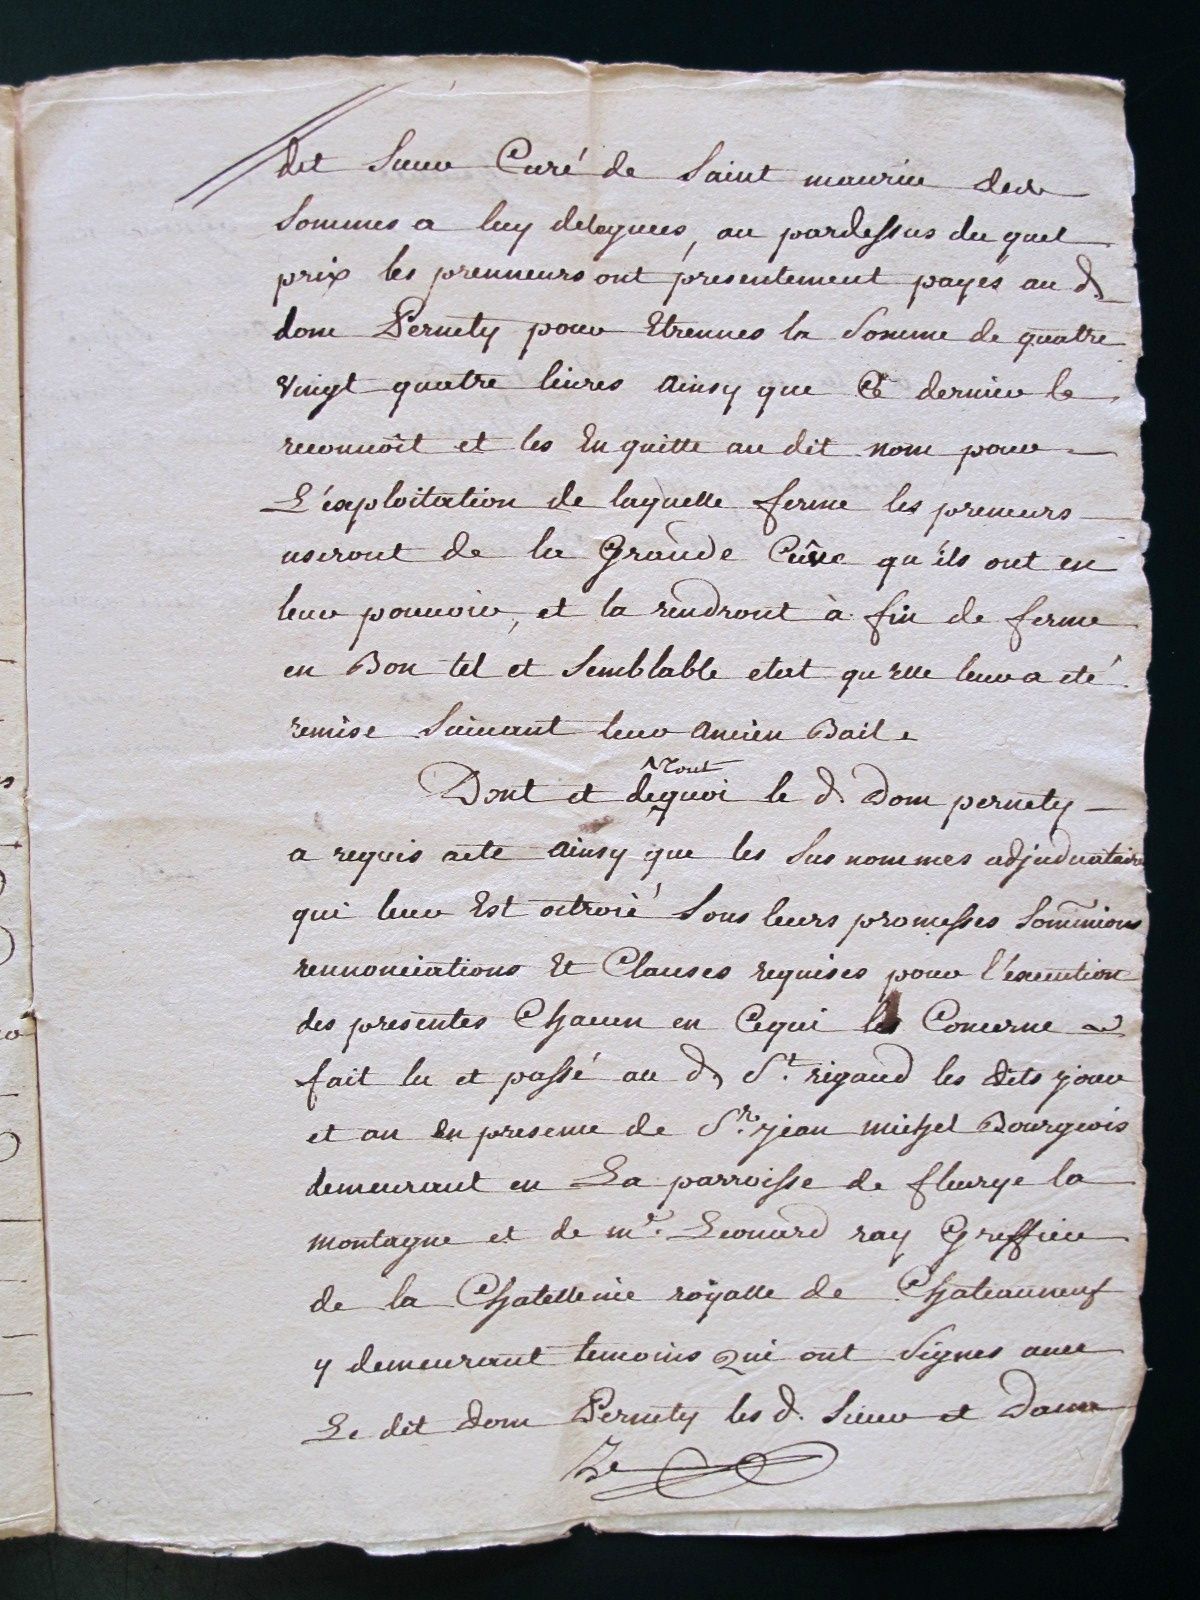 dit Sieur Curé de Saint maurice des
Sommes a luy deleguées, au pardessus du quel
prix les prenneurs ont presentement payés au d.
dom Pernety pour Etrennes la Somme de quatre
vingt quatre livres ainsy que Ce dernier le
reconnoit et les En quitte au dit nom pour
L'exploitation de laquelle ferme les preneurs
useront de la Grande Cûve qu'ils ont en
leur pouvoir, et la rendront à fin de ferme
en Bon tel et Semblable etat qu'elle leur a eté
remise Suivant leur ancien Bail.
tout
Dont et dequoi le d. Dom pernety
a requis acte ainsy que les Sus nommes adjudicataires
qui leur Est octroié Sous leurs promesses Somissions
rennonciations Et Clauses requises pour l'execution
des presentes Chacun en Cequi les Concerne
fait lu et passé au d. St. rigaud les dits jour
et an En presence de Sr. jean michel Bourgeois
demeurant en La parroisse de fleurye la
montagne et de mr. Leonard ray Greffier
de la Chatellenie royalle de Chateauneuf
y demeurant temoins Qui ont Signes avec
Le dit Dom Pernety les d. Sieur et Dame